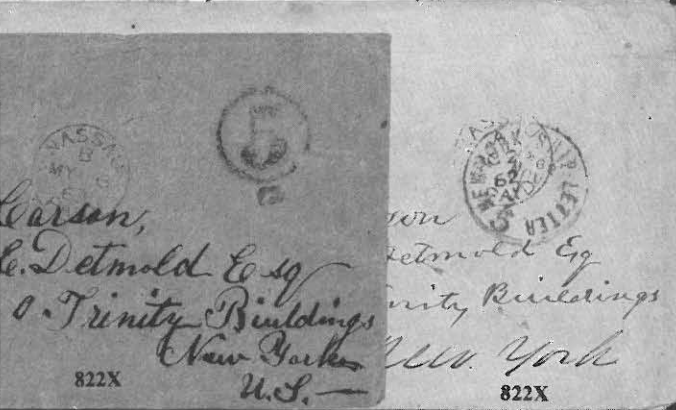 NASSAU
B
MY 6
63
5
Carson,
C. Detmold Esq
0. Trinity Buildings
New York
U.S.
822X
NEW YORK SHIP LETTER
NASSAU
62
son
Detmold Esq
nity Buildings
New York
822X